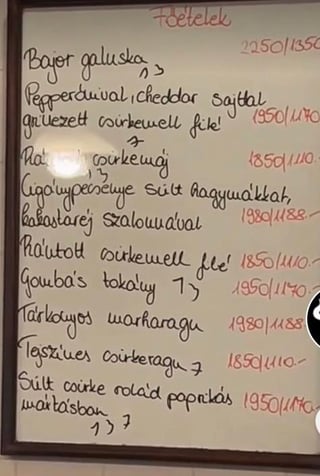 Főételek
Bajor galuska 2250/1350
1 3
Pepperónival, cheddar sajttal
grillezett csirkemell filé 1950/1170
7
csirkemáj 1850/1110.-
1 3
Cigánypecsenye sült hagymákkal,
kakastaréj szalonnával 1980/1188.-
Rántott csirkemell filé 1850/1110.-
Gombás tokány 1 3 1950/1170.-
Tárkonyos marharagu 1980/1188
Tejszínes csirkeragu 7 1850/1110.-
Sült csirke rolád paprikás 1950/1170.-
mártásban
1 3 7